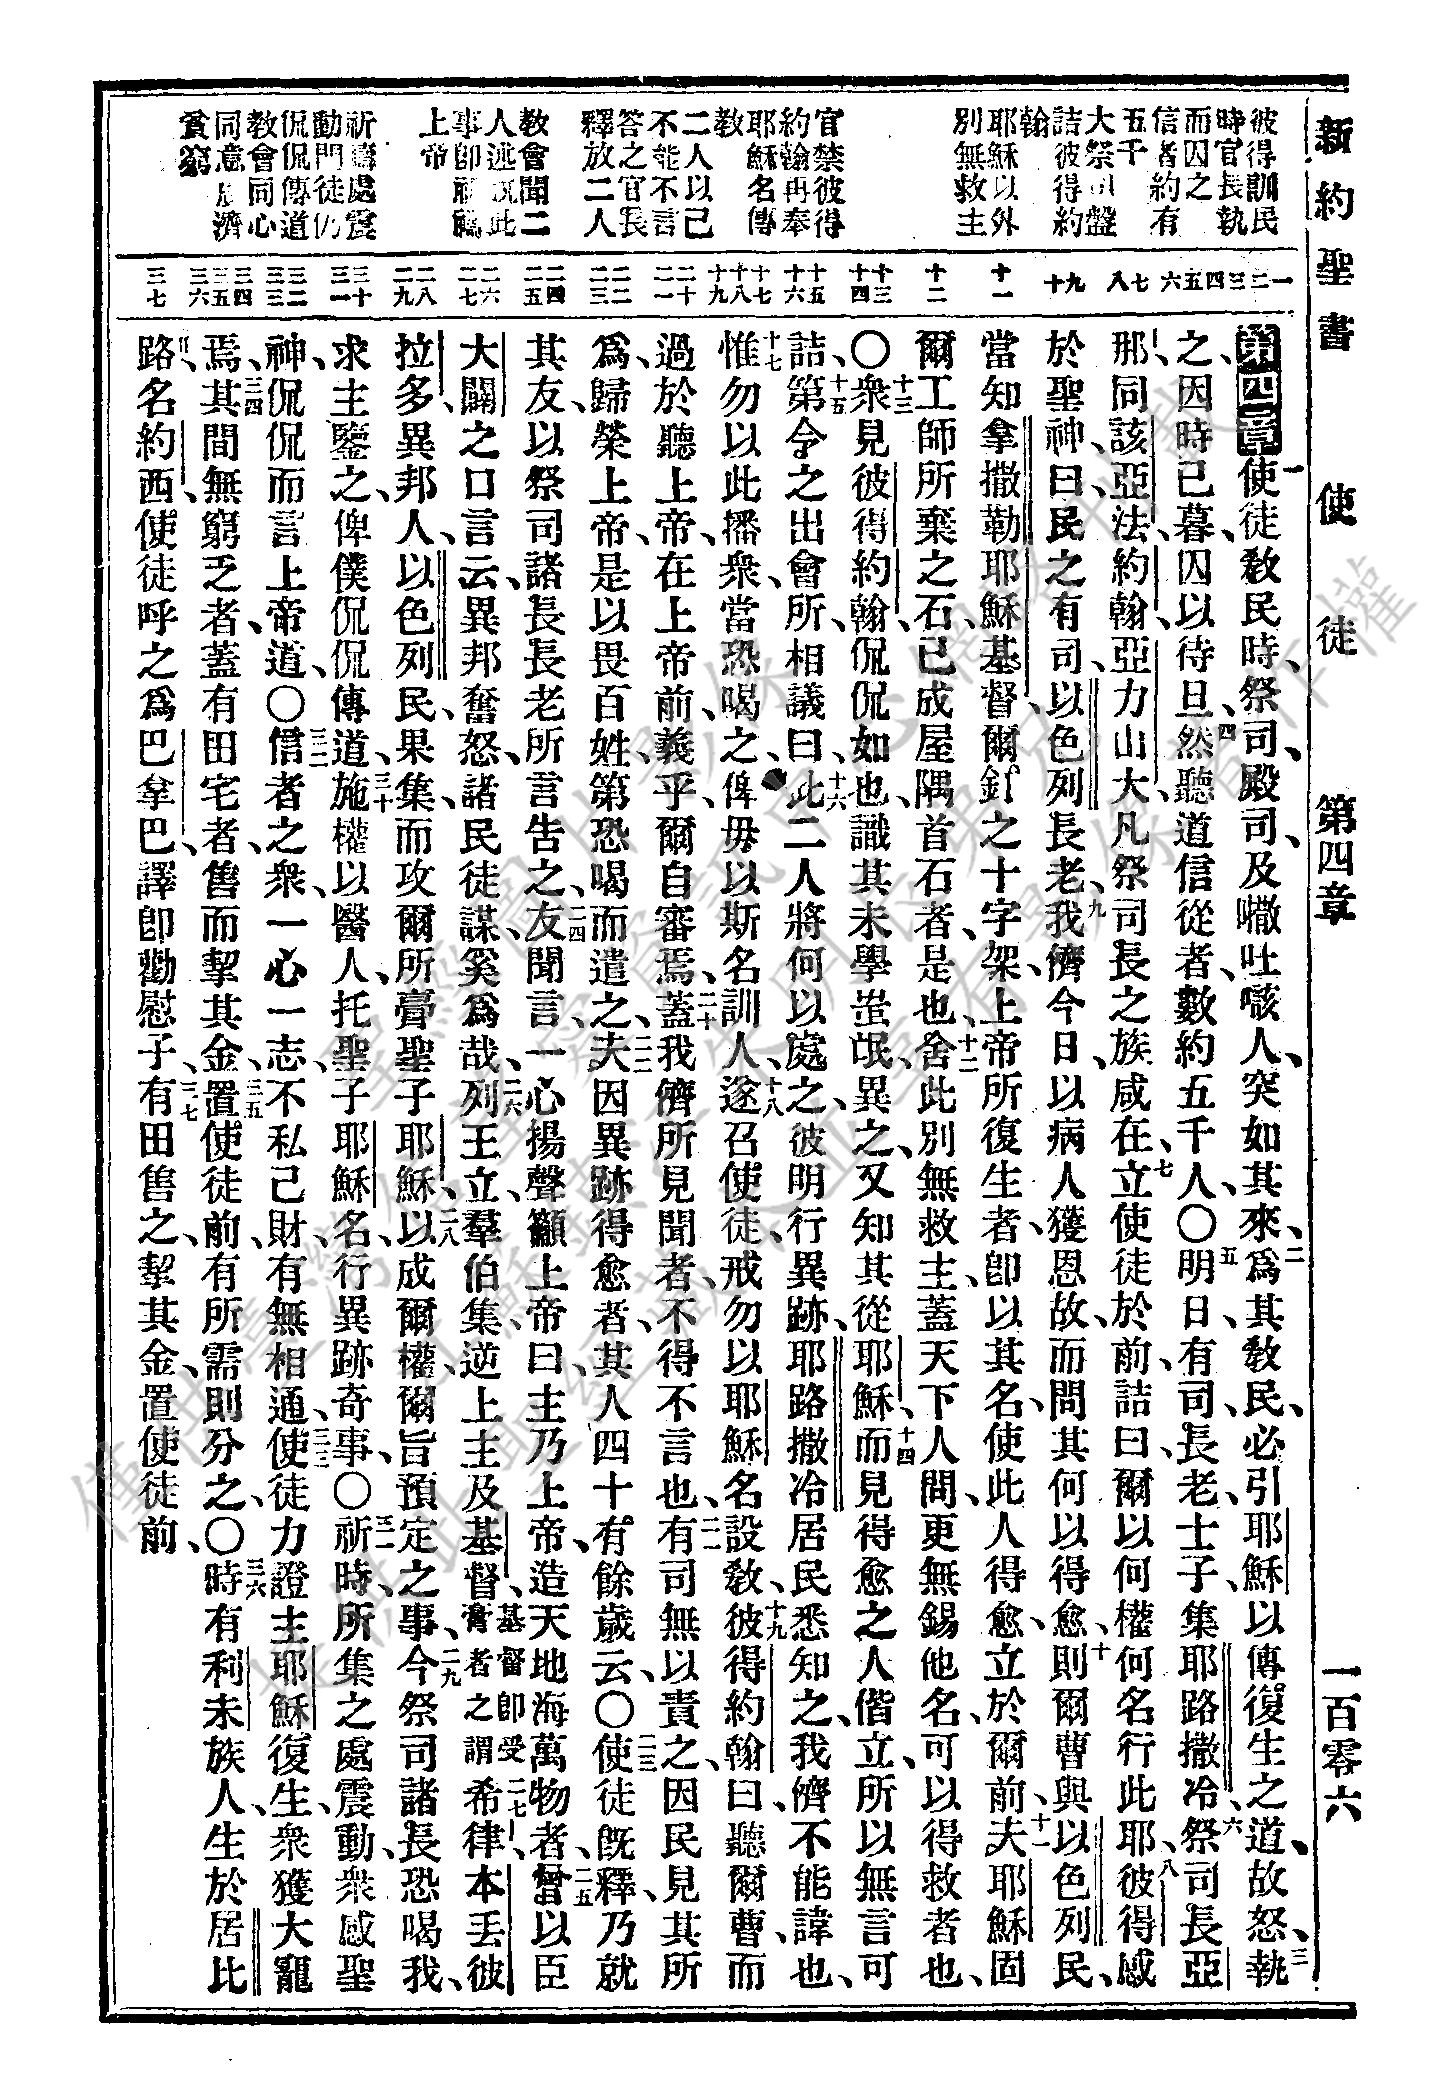 新約聖書 使徒 第四章 一百零六
彼得訓民
時官長執
而囚之
信者約有
五千
詰彼得約
翰
耶穌以外
別無救主
官禁彼得
約翰再奉
耶穌名傳
教
二人以己
不能不言
答之官長
釋放二人
教會聞二
上帝
侃侃傳道
教會同心
貧窮
一
二三
四五
六
七八
九十
十一
十二
十三十四
十五十六
十七十八十九
二十二一
二二二三
二四二五
二六二七
二八二九
三十三一
三二三三
三四三五三六
三七
第四章一使徒教民時、祭司、殿司、及㘔吐㗨人、突如其來、二爲其教民、必引耶穌以傳復生之道、故怒、三執
之、因時已暮、囚以待旦、四然聽道信從者、數約五千人、〇五明日、有司、長老、士子、集耶路撒冷、六祭司長亞
那、同該亞法、約翰、亞力山大、凡祭司長之族咸在、七立使徒於前、詰曰、爾以何權何名行此、八彼得感
於聖神、曰、民之有司、以色列長老、九我儕今日、以病人獲恩故、而問其何以得愈、十則爾曹與以色列民、
當知拿撒勒耶穌基督、爾釘之十字架、上帝所復生者、卽以其名、使此人得愈、立於爾前、十一夫耶穌固
爾工師所棄之石、已成屋隅首石者是也、十二舍此別無救主、蓋天下人間、更無錫他名、可以得救者也、
〇十三衆見彼得約翰、侃侃如也、識其未學蚩氓、異之、又知其從耶穌、十四而見得愈之人偕立、所以無言可
詰、十五第令之出會所、相議曰、十六此二人將何以處之、彼明行異跡、耶路撒冷居民悉知之、我儕不能諱也、
十七惟勿以此播衆、當恐喝之、俾毋以斯名訓人、十八遂召使徒、戒勿以耶穌名設教、十九彼得約翰曰、聽爾曹、而
過於聽上帝、在上帝前、義乎、爾自審焉、二十蓋我儕所見聞者、不得不言也、二一有司無以責之、因民見其所
爲、歸榮上帝、是以畏百姓、第恐喝而遣之、二二夫因異跡得愈者、其人四十有餘歲云、〇二三使徒旣釋、乃就
其友、以祭司諸長長老所言告之、二四友聞言、一心揚聲籲上帝曰、主乃上帝、造天地海萬物者、二五曾以臣
大闢之口言云、異邦奮怒、諸民徒謀、奚爲哉、二六列王立、羣伯集、逆上主及基督、基督卽受膏者之謂二七希律、本丟彼
拉多、異邦人、以色列民、果集、而攻爾所膏聖子耶穌、二八以成爾權、爾旨預定之事、二九今祭司諸長恐喝我、
求主鑒之、俾僕侃侃傳道、三十施權以醫人、托聖子耶穌名、行異跡奇事、〇三一祈時、所集之處震動、衆感聖
神、侃侃而言上帝道、〇三二信者之衆、一心一志、不私己財、有無相通、三三使徒力證主耶穌復生、衆獲大寵
焉、三四其間無窮乏者、蓋有田宅者、售而挈其金、三五置使徒前、有所需則分之、〇三六時有利未族人、生於居比
路、名約西、使徒呼之爲巴拿巴、譯卽勸慰子、三七有田售之、挈其金、置使徒前、